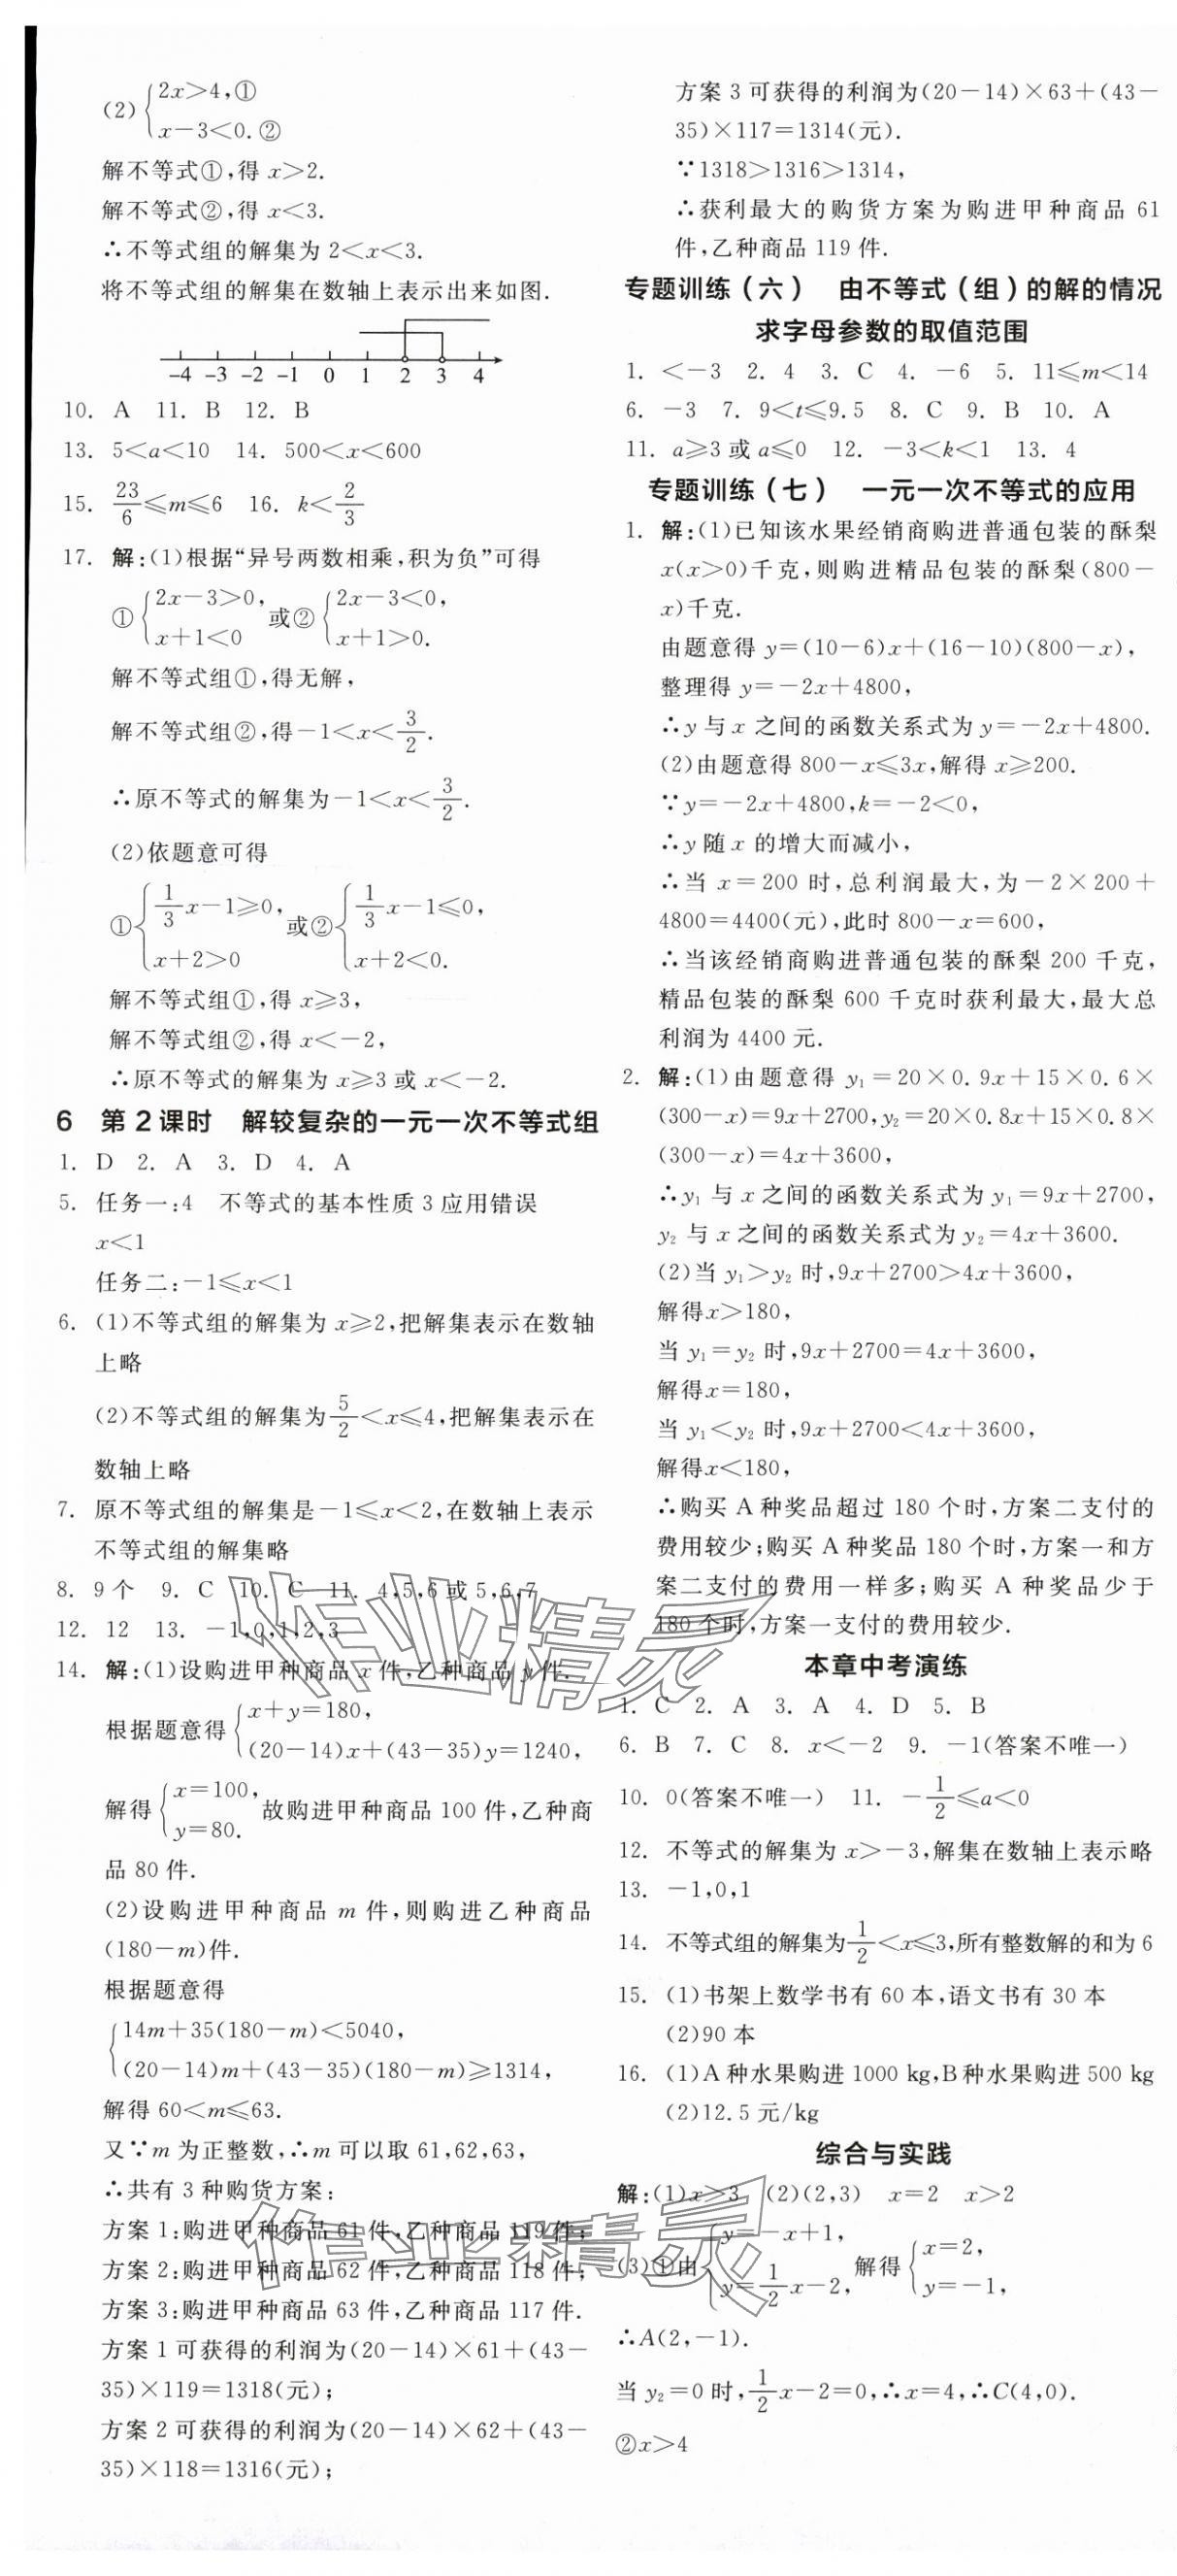 (2) {2x>4,①
x-3<0.②
解不等式①,得 x>2.
解不等式②,得 x<3.
∴不等式组的解集为 2<x<3.
将不等式组的解集在数轴上表示出来如图.
-4 -3 -2 -1 0 1 2 3 4
10. A 11. B 12. B
13. 5<a<10 14. 500<x<600
15. 23/6≤m≤6 16. k<2/3
17. 解:(1)根据“异号两数相乘,积为负”可得
①{2x-3>0, x+1<0 或②{2x-3<0, x+1>0.
解不等式组①,得无解,
解不等式组②,得-1<x<3/2.
∴原不等式的解集为-1<x<3/2.
(2)依题意可得
①{1/3x-1≥0, x+2>0 或②{1/3x-1≤0, x+2<0.
解不等式组①,得 x≥3,
解不等式组②,得 x<-2,
∴原不等式的解集为 x≥3 或 x<-2.
6 第 2 课时 解较复杂的一元一次不等式组
1. D 2. A 3. D 4. A
5. 任务一:4 不等式的基本性质 3 应用错误
x<1
任务二:-1≤x<1
6. (1)不等式组的解集为 x≥2,把解集表示在数轴
上略
(2)不等式组的解集为5/2<x≤4,把解集表示在
数轴上略
7. 原不等式组的解集是-1≤x<2,在数轴上表示
不等式组的解集略
8. 9 个 9. C 10. C 11. 4,5,6 或 5,6,7
12. 12 13. -1,0,1,2,3
14. 解:(1)设购进甲种商品 x 件,乙种商品 y 件.
根据题意得{x+y=180, (20-14)x+(43-35)y=1240,
解得{x=100, y=80. 故购进甲种商品 100 件,乙种商
品 80 件.
(2)设购进甲种商品 m 件,则购进乙种商品
(180-m)件.
根据题意得
{14m+35(180-m)<5040,
(20-14)m+(43-35)(180-m)≥1314,
解得 60<m≤63.
又∵m 为正整数,∴m 可以取 61,62,63,
∴共有 3 种购货方案:
方案 1:购进甲种商品 61 件,乙种商品 119 件;
方案 2:购进甲种商品 62 件,乙种商品 118 件;
方案 3:购进甲种商品 63 件,乙种商品 117 件.
方案 1 可获得的利润为(20-14)×61+(43-
35)×119=1318(元);
方案 2 可获得的利润为(20-14)×62+(43-
35)×118=1316(元);
方案 3 可获得的利润为(20-14)×63+(43-
35)×117=1314(元).
∵1318>1316>1314,
∴获利最大的购货方案为购进甲种商品 61
件,乙种商品 119 件.
专题训练(六) 由不等式(组)的解的情况
求字母参数的取值范围
1. <-3 2. 4 3. C 4. -6 5. 11≤m<14
6. -3 7. 9<t≤9.5 8. C 9. B 10. A
11. a≥3 或 a≤0 12. -3<k<1 13. 4
专题训练(七) 一元一次不等式的应用
1. 解:(1)已知该水果经销商购进普通包装的酥梨
x(x>0)千克,则购进精品包装的酥梨(800-
x)千克.
由题意得 y=(10-6)x+(16-10)(800-x),
整理得 y=-2x+4800,
∴y 与 x 之间的函数关系式为 y=-2x+4800.
(2)由题意得 800-x≤3x,解得 x≥200.
∵y=-2x+4800,k=-2<0,
∴y 随 x 的增大而减小,
∴当 x=200 时,总利润最大,为-2×200+
4800=4400(元),此时 800-x=600,
∴当该经销商购进普通包装的酥梨 200 千克,
精品包装的酥梨 600 千克时获利最大,最大总
利润为 4400 元.
2. 解:(1)由题意得 y₁=20×0.9x+15×0.6×
(300-x)=9x+2700,y₂=20×0.8x+15×0.8×
(300-x)=4x+3600,
∴y₁ 与 x 之间的函数关系式为 y₁=9x+2700,
y₂ 与 x 之间的函数关系式为 y₂=4x+3600.
(2)当 y₁>y₂ 时,9x+2700>4x+3600,
解得x>180,
当 y₁=y₂ 时,9x+2700=4x+3600,
解得x=180,
当 y₁<y₂ 时,9x+2700<4x+3600,
解得x<180,
∴购买 A 种奖品超过 180 个时,方案二支付的
费用较少;购买 A 种奖品 180 个时,方案一和方
案二支付的费用一样多;购买 A 种奖品少于
180 个时,方案一支付的费用较少.
本章中考演练
1. C 2. A 3. A 4. D 5. B
6. B 7. C 8. x<-2 9. -1(答案不唯一)
10. 0(答案不唯一) 11. -1/2≤a<0
12. 不等式的解集为 x>-3,解集在数轴上表示略
13. -1,0,1
14. 不等式组的解集为1/2<x≤3,所有整数解的和为 6
15. (1)书架上数学书有 60 本,语文书有 30 本
(2)90 本
16. (1)A 种水果购进 1000 kg,B种水果购进 500 kg
(2)12.5 元/kg
综合与实践
解:(1)x>3 (2)(2,3) x=2 x>2
(3)①由{y=-x+1, y=1/2x-2, 解得{x=2, y=-1,
∴A(2,-1).
当 y₂=0 时,1/2x-2=0,∴x=4,∴C(4,0).
②x>4
作业精灵
作业精灵